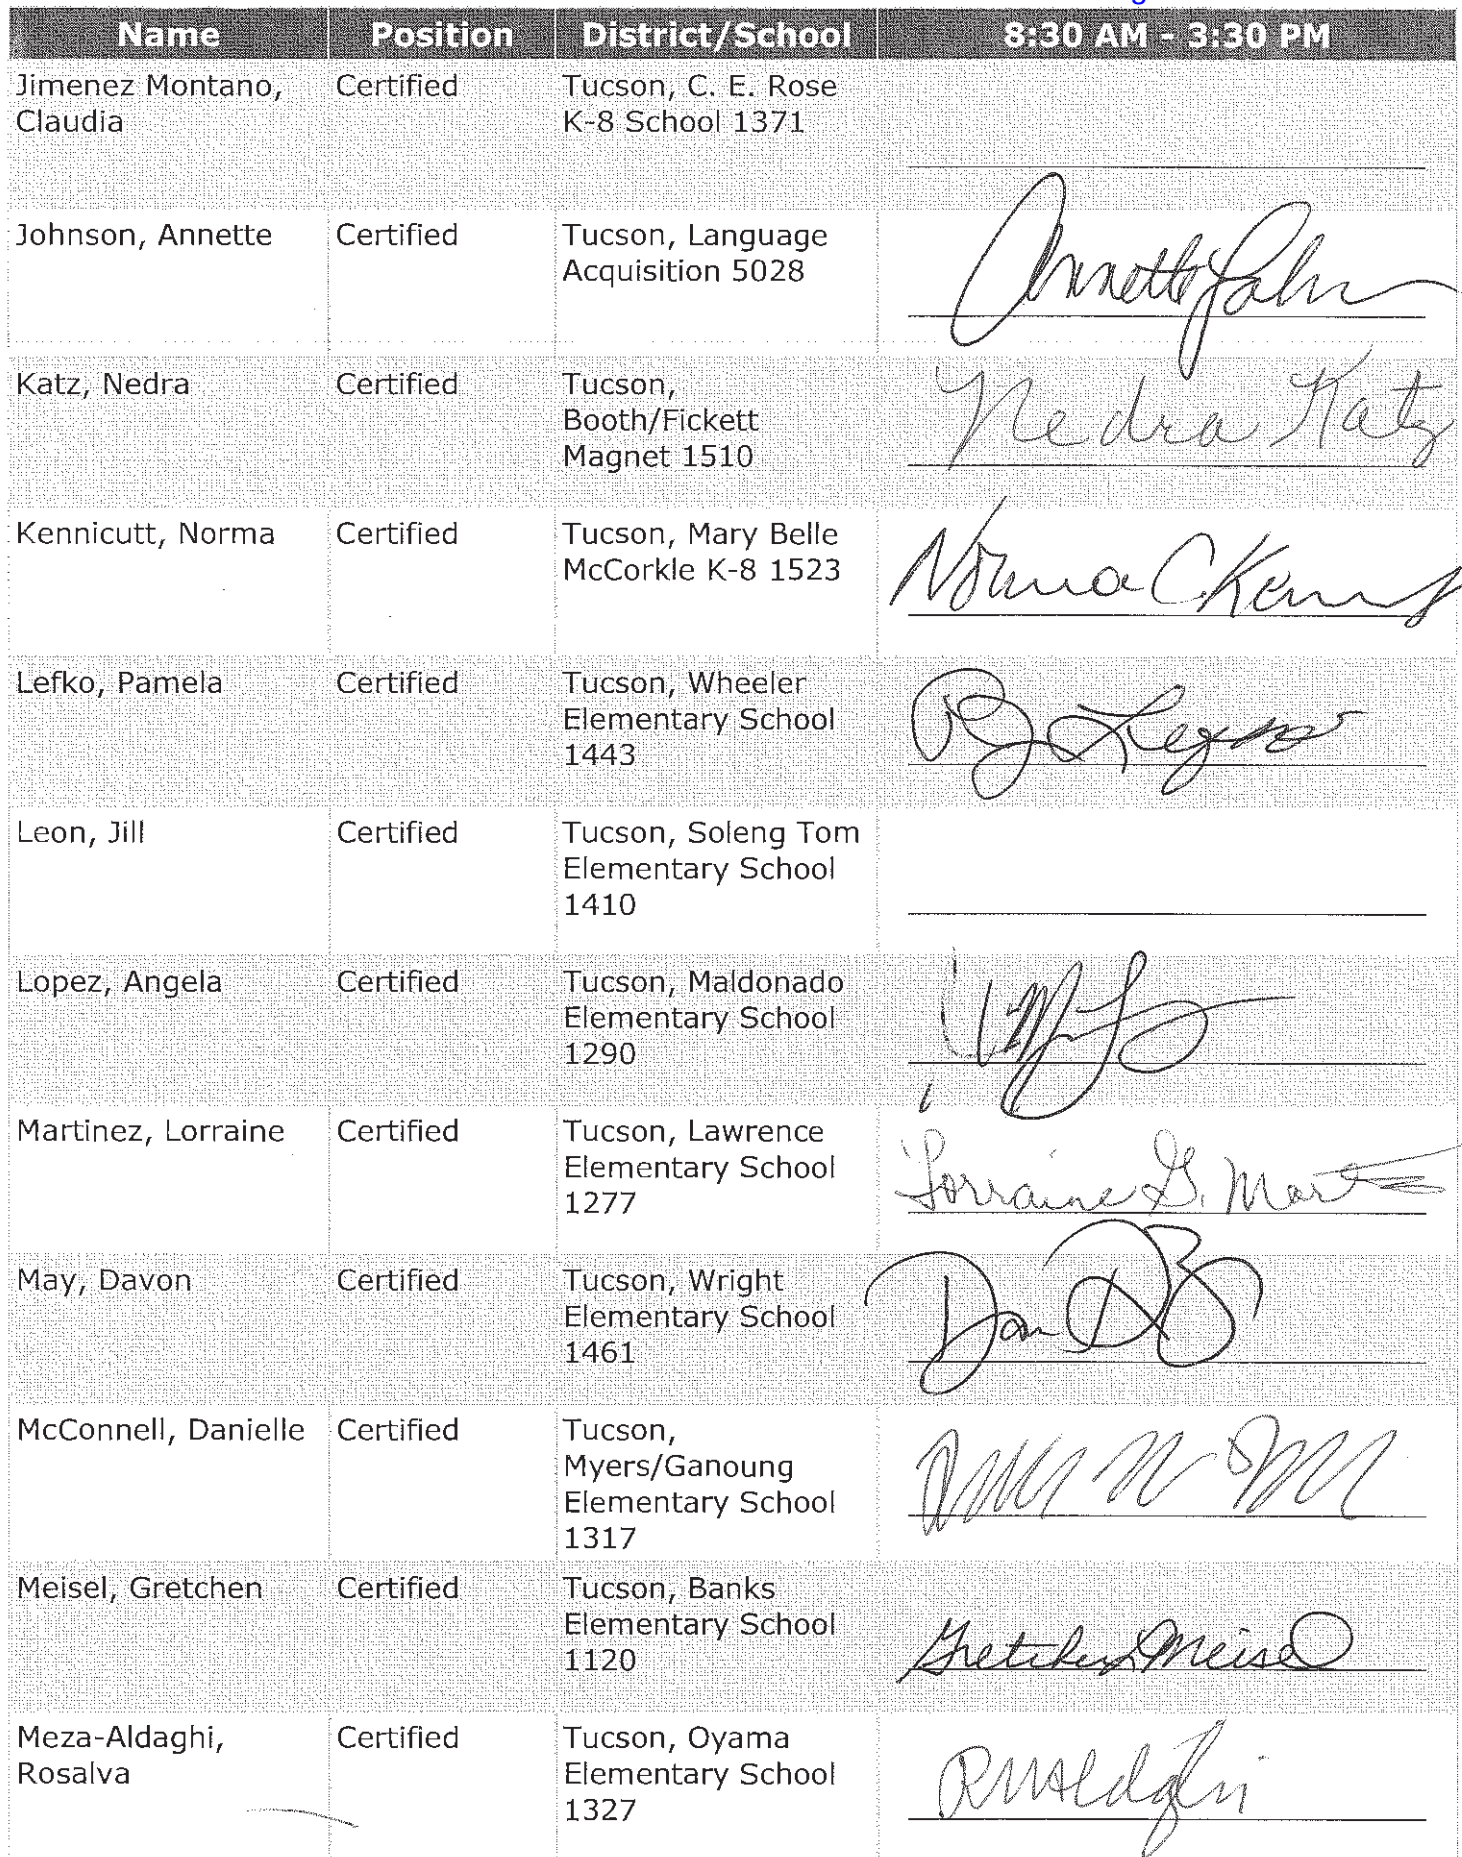 Name Position District/School 8:30 AM - 3:30 PM
Jimenez Montano, Certified Tucson, C. E. Rose
Claudia K-8 School 1371
Johnson, Annette Certified Tucson, Language
Acquisition 5028
Annette Johns
Katz, Nedra Certified Tucson,
Booth/Fickett
Magnet 1510
Nedra Katz
Kennicutt, Norma Certified Tucson, Mary Belle
McCorkle K-8 1523
Norma C Kenn
Lefko, Pamela Certified Tucson, Wheeler
Elementary School
1443
Leon, Jill Certified Tucson, Soleng Tom
Elementary School
1410
Lopez, Angela Certified Tucson, Maldonado
Elementary School
1290
Martinez, Lorraine Certified Tucson, Lawrence
Elementary School
1277
Lorraine G. Mart
May, Davon Certified Tucson, Wright
Elementary School
1461
McConnell, Danielle Certified Tucson,
Myers/Ganoung
Elementary School
1317
Meisel, Gretchen Certified Tucson, Banks
Elementary School
1120
Gretchen Meisel
Meza-Aldaghi, Certified Tucson, Oyama
Rosalva Elementary School
1327
RMAldaghi